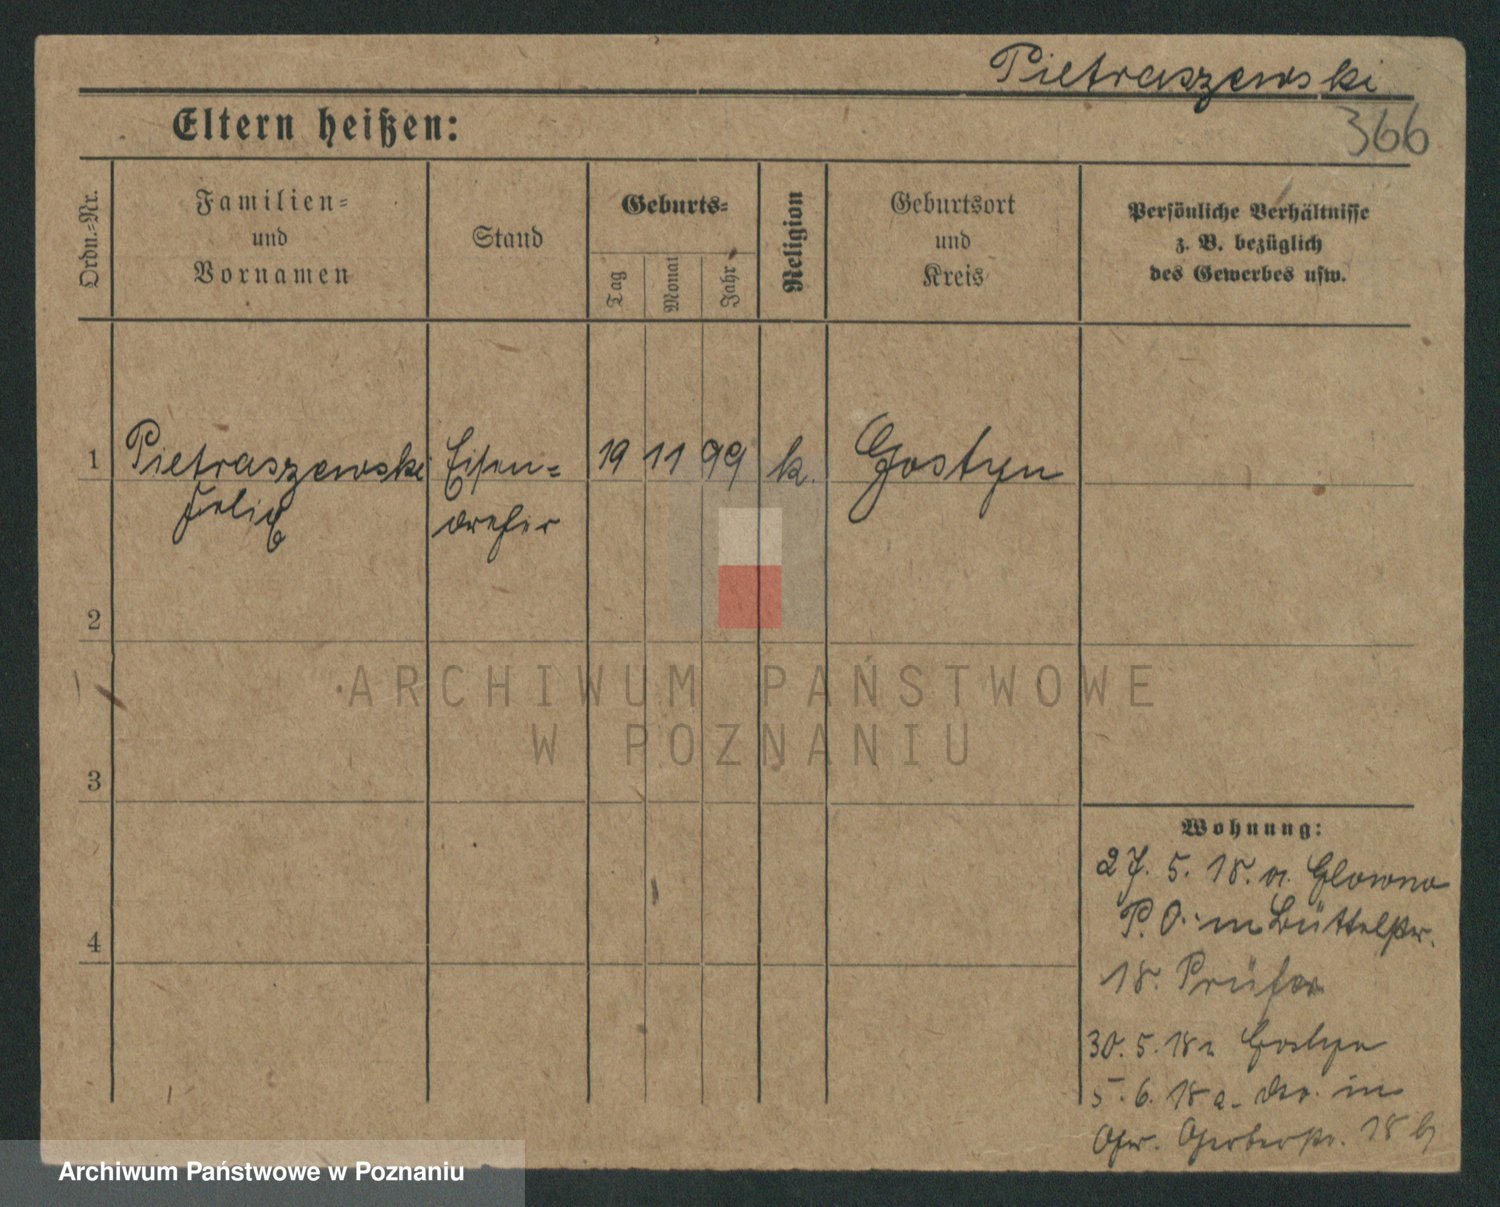 Pietraszewski
366
Eltern heißen:
Ordn.-Nr.
Familien-
und
Vornamen
Stand
Geburts-
Tag
Monat
Jahr
Religion
Geburtsort
und
Kreis
Persönliche Verhältnisse
z. B. bezüglich
des Gewerbes usw.
1 Pietraszewski Eisen- 19 11 99 k. Gostyn
Felix dreher
2
3
4
Wohnung:
27. 5. 18. a. Glowno
P. O. m Büttelstr.
18. Prüfer
30. 5. 18 n Gostyn
5. 6. 18 a. do. in
Gerberstr. 18 b
ARCHIWUM PAŃSTWOWE
W POZNANIU
Archiwum Państwowe w Poznaniu